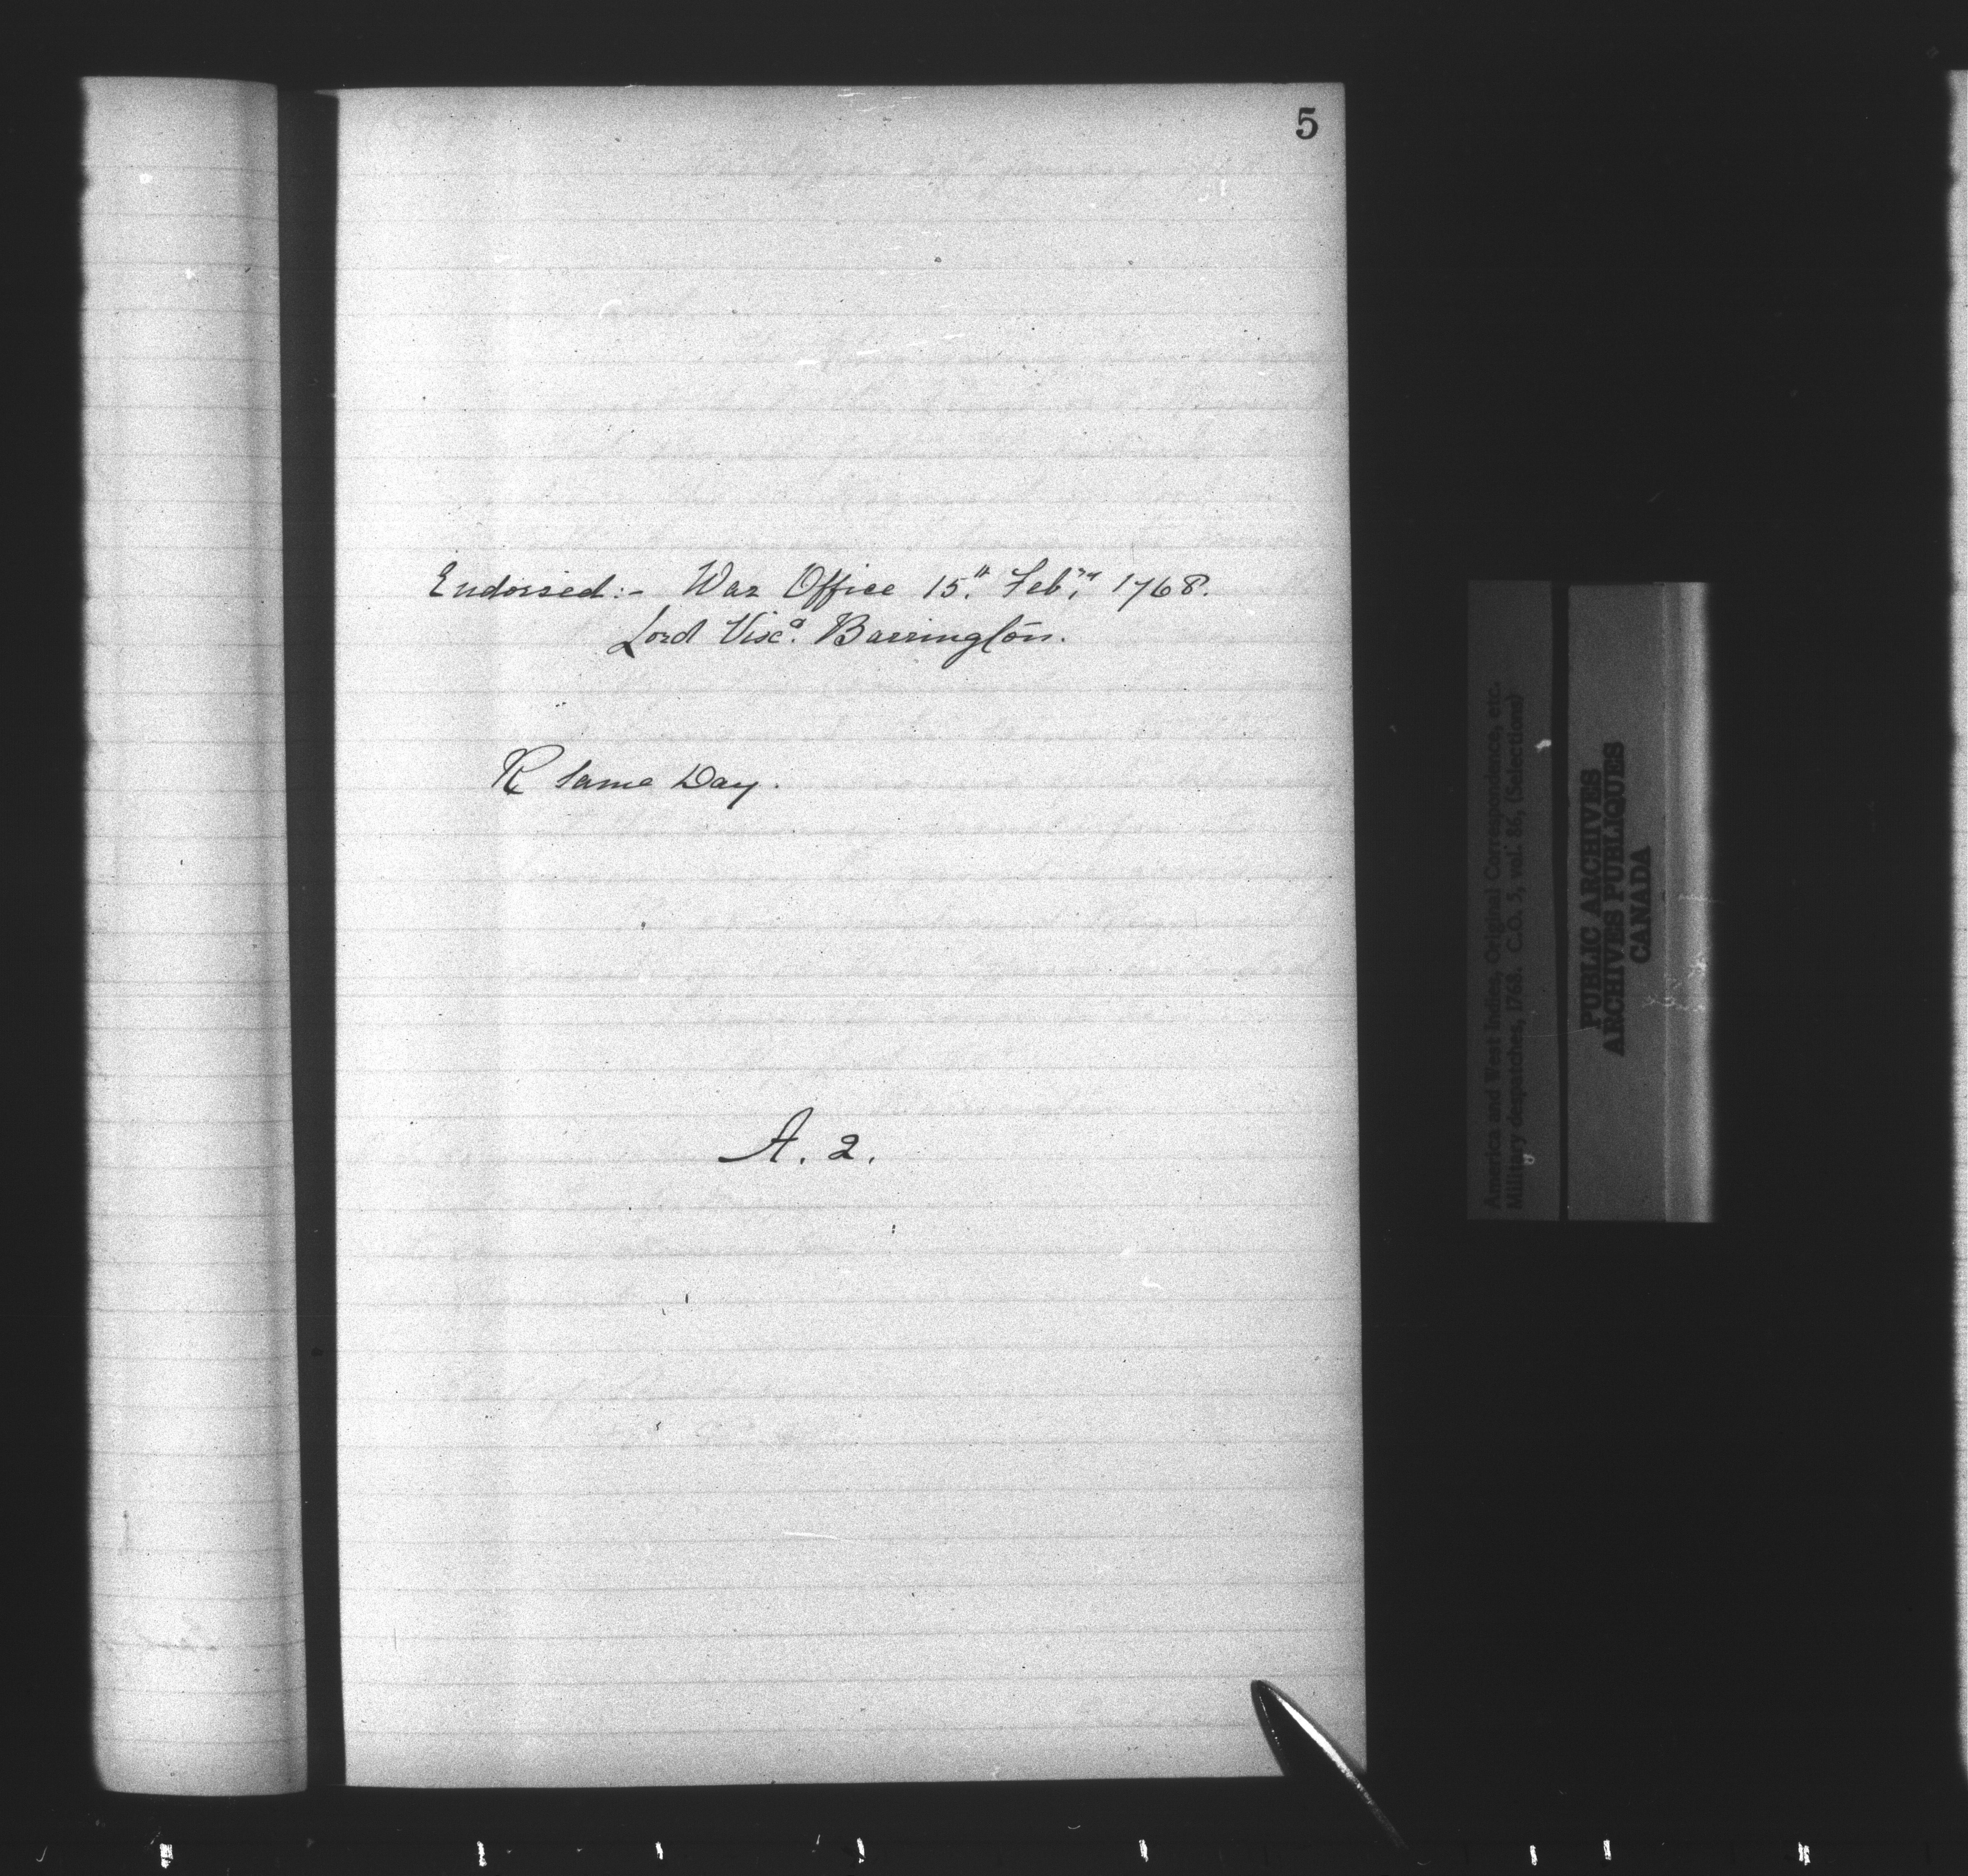 5
Endorsed:- War Office 15th Febry 1768.
Lord Visct. Barrington.
R same Day.
A. 2.
America and West Indies, Original Correspondence, etc.
Military despatches, 1768. C.O. 5, vol. 86, (Selections)
PUBLIC ARCHIVES
ARCHIVES PUBLIQUES
CANADA